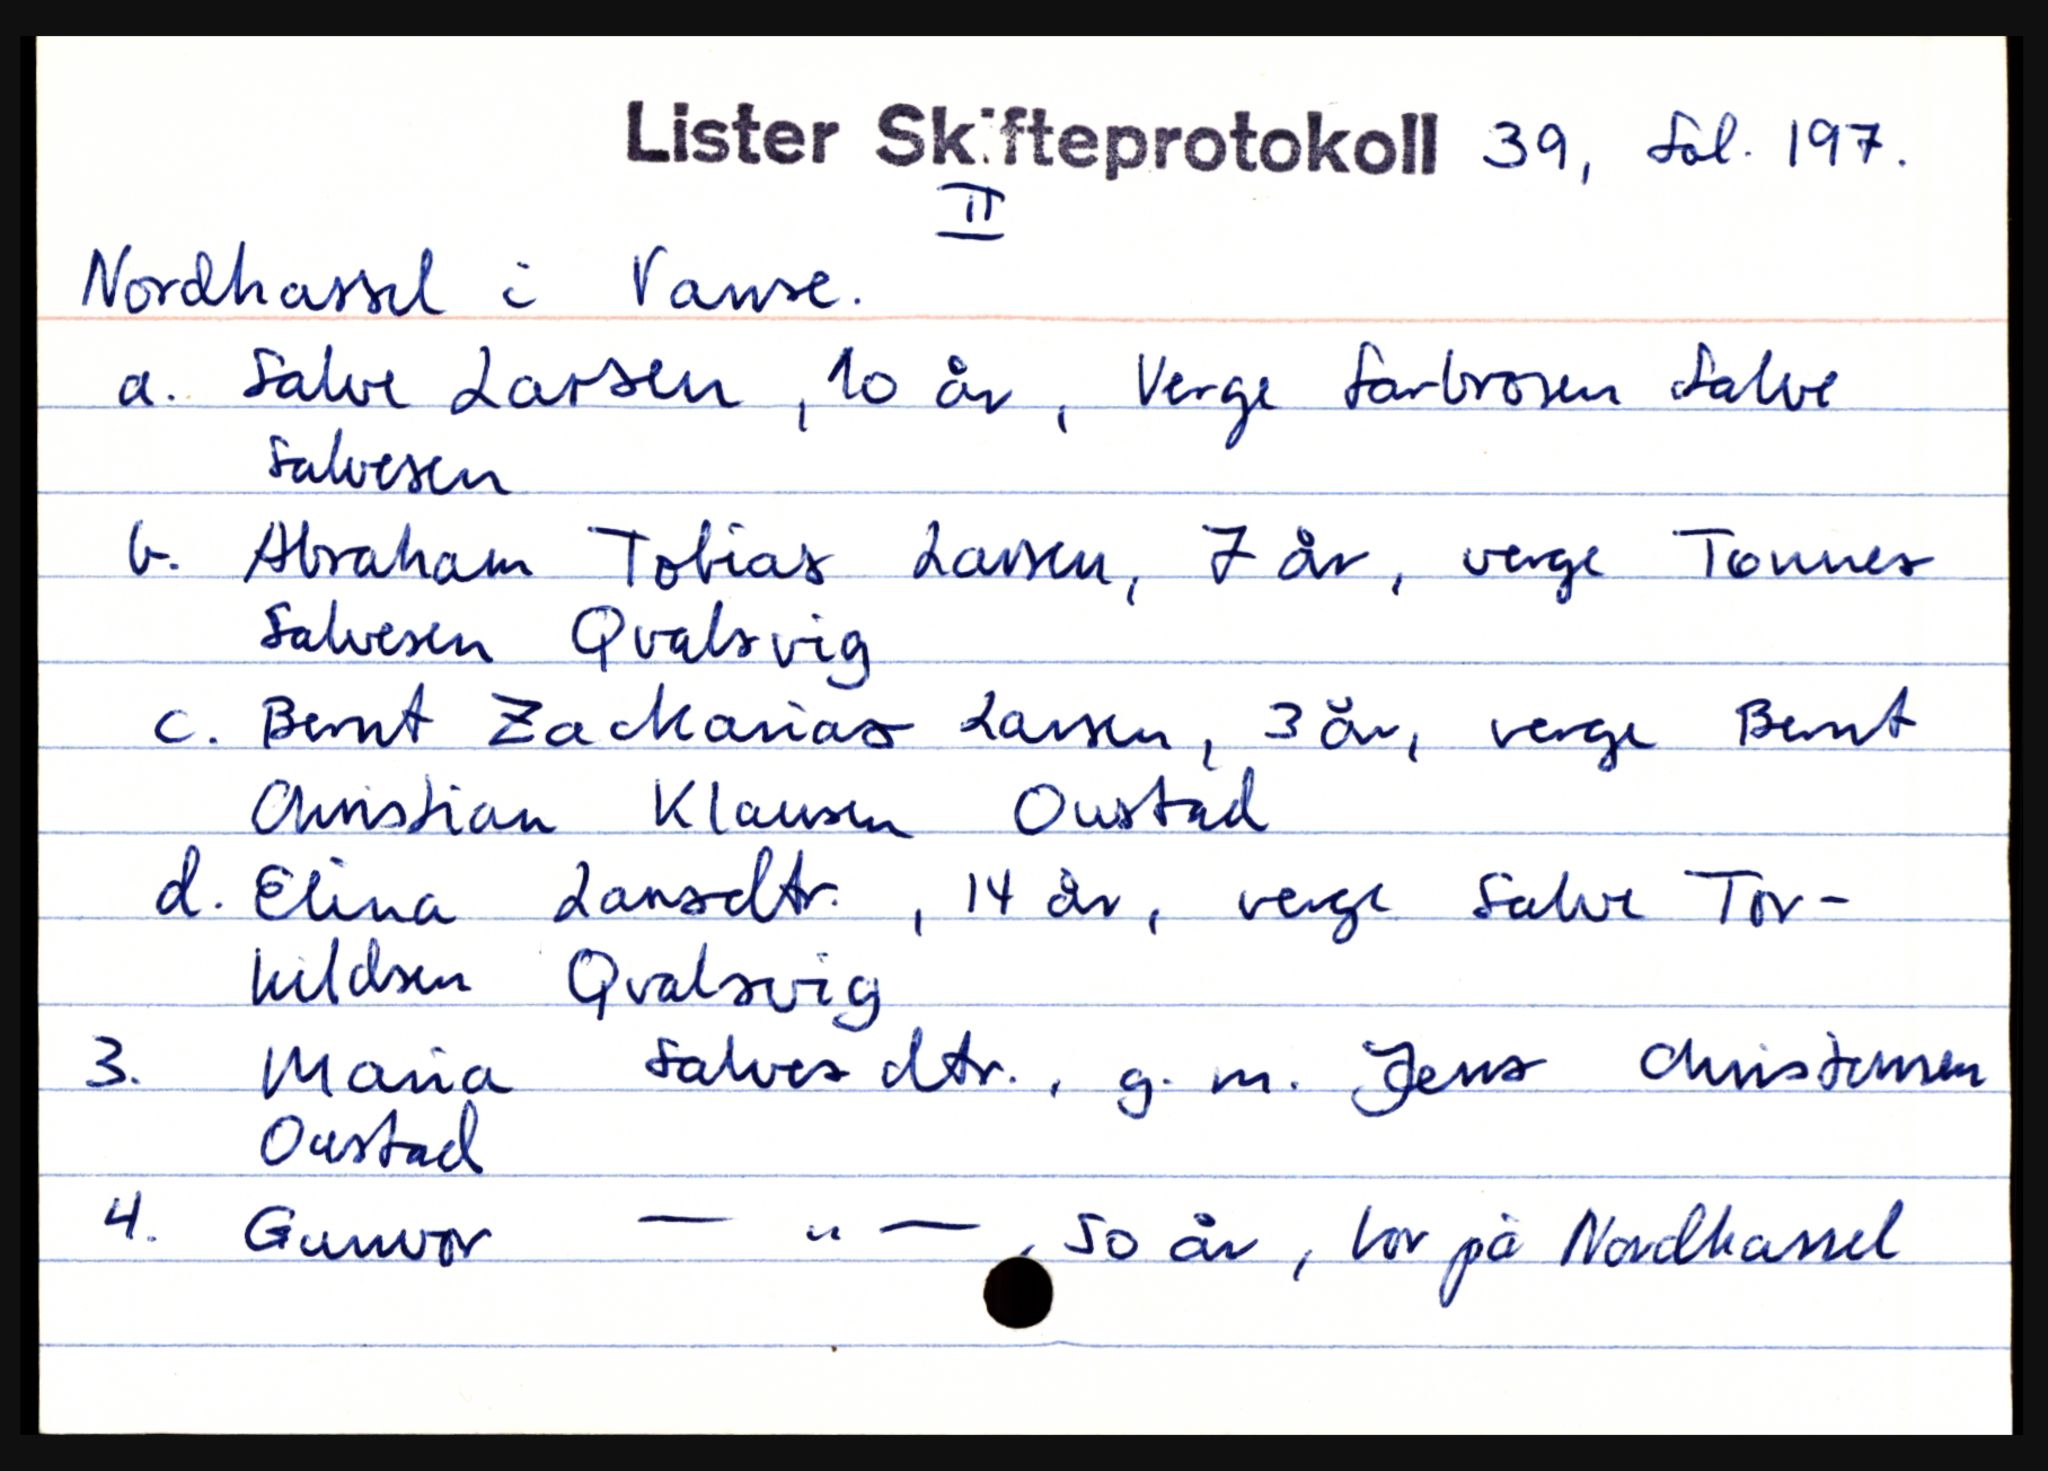 Lister Skifteprotokoll 39, fol. 197.
II
Nordhassel i Vanse.
a. Salve Larsen, 10 år, Verge farbrosen Salve
Salvesen
b. Abraham Tobias Larsen, 7 år, verge Tonnes
Salvesen Qvalsvig
c. Bernt Zackarias Larsen, 3 år, verge Bernt
Christian Klausen Oustad
d. Elina Larsdtr., 14 år, verge Salve Tor-
kildsen Qvalsvig
3. Maria Salvesdtr., g. m. Jens Christensen
Oustad
4. Gunvor — " —, 50 år, bor på Nordhassel